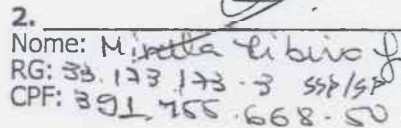 2.
Nome: Mirella Ribeiro
RG: 33.173.173-3 SSP/SP
CPF: 391.755.668-50